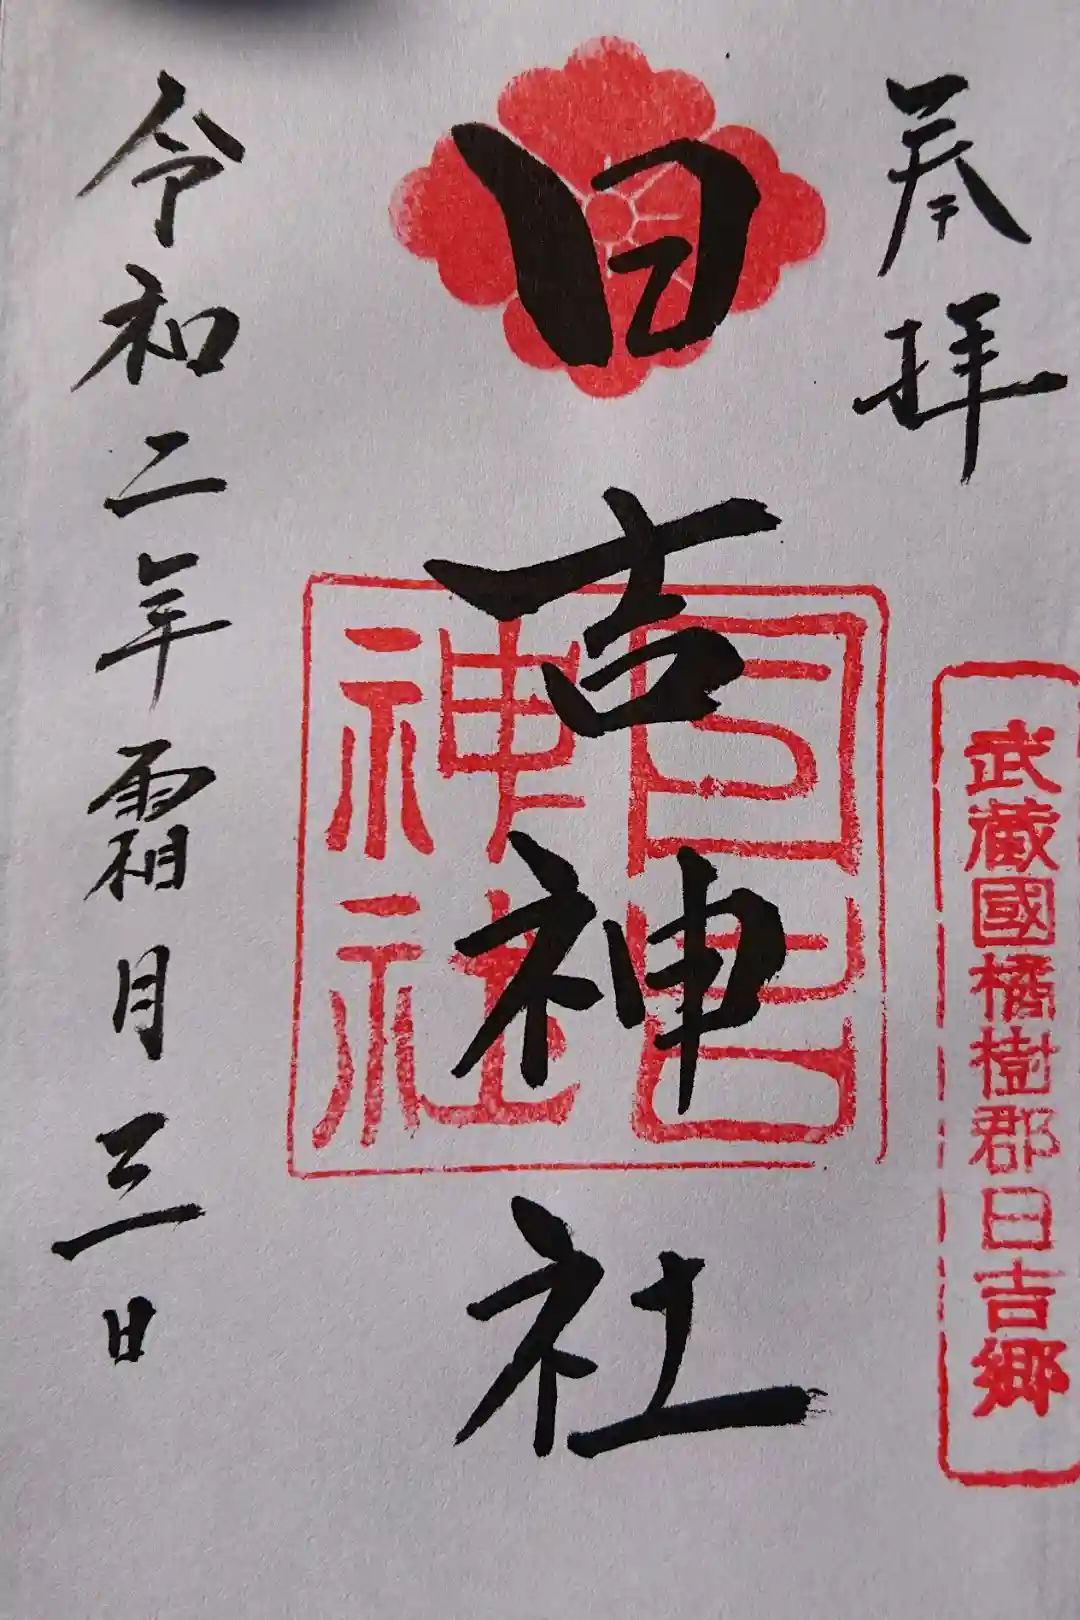 奉拝
武蔵國橘樹郡日吉郷
日吉神社
日吉神社
令和二年霜月三日